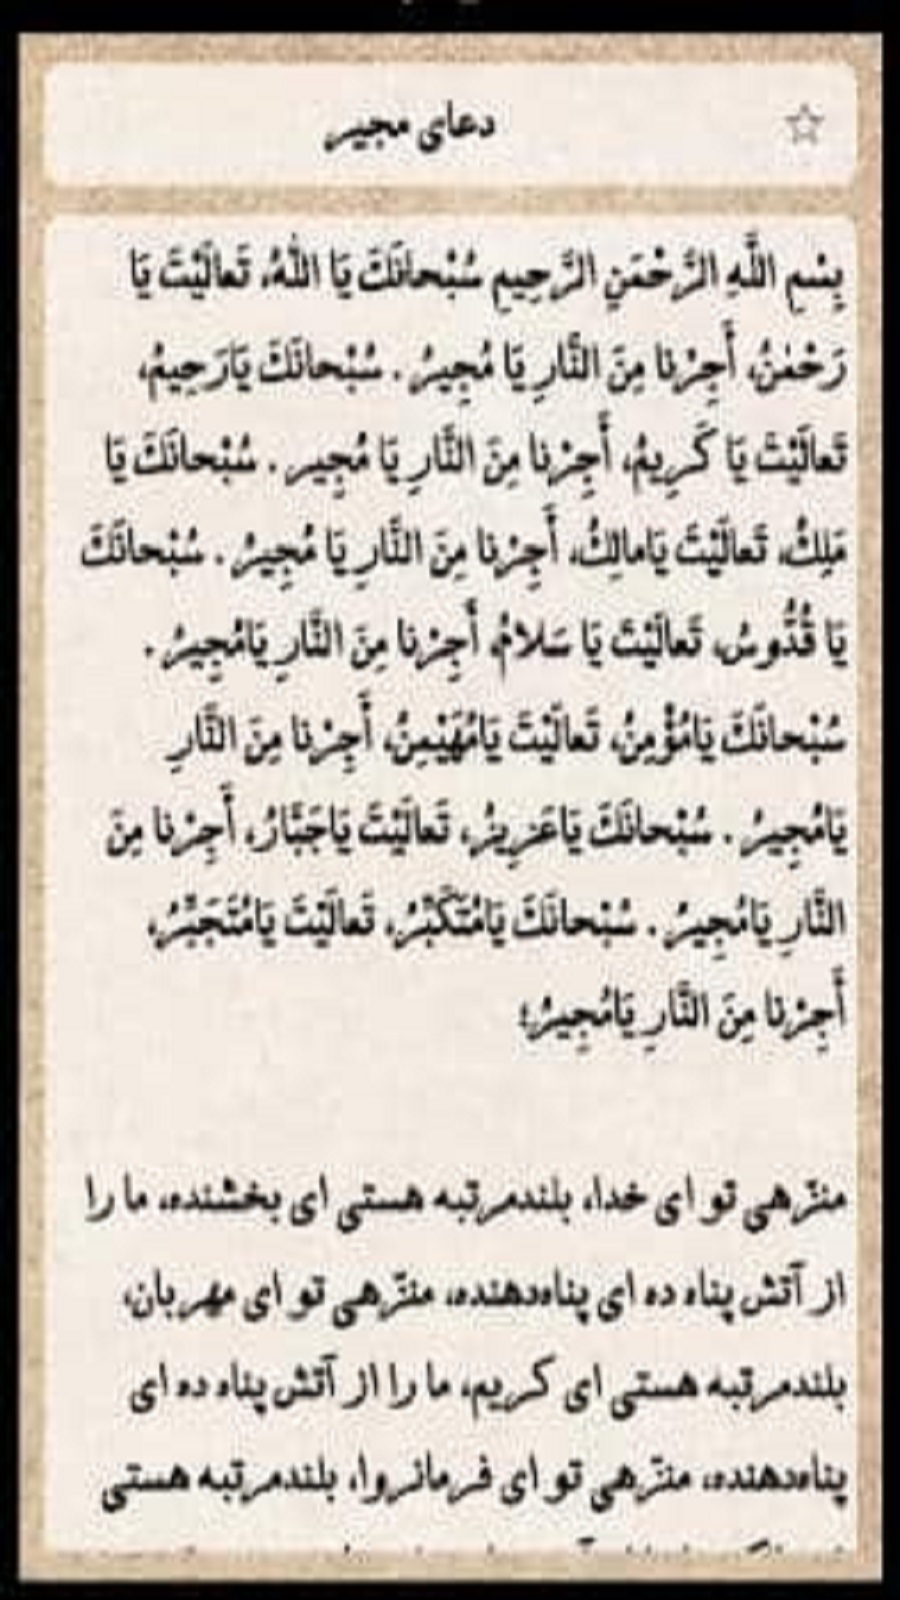 دعای مجیر
بِسْمِ اللَّهِ الرَّحْمَنِ الرَّحِیمِ سُبْحانَكَ یَا اللّٰهُ، تَعالَیْتَ یَا
رَحْمٰنُ، أَجِرْنا مِنَ النَّارِ یَا مُجِیرُ . سُبْحانَكَ یَارَحِیمُ،
تَعالَیْتَ یَا كَرِیمُ، أَجِرْنا مِنَ النَّارِ یَا مُجِیر . سُبْحانَكَ یَا
مَلِكُ، تَعالَیْتَ یَامالِكُ، أَجِرْنا مِنَ النَّارِ یَا مُجِیرُ . سُبْحانَكَ
یَا قُدُّوسُ، تَعالَیْتَ یَا سَلامُ، أَجِرْنا مِنَ النَّارِ یَامُجِیرُ .
سُبْحانَكَ یَامُؤْمِنُ، تَعالَیْتَ یَامُهَیْمِنُ، أَجِرْنا مِنَ النَّارِ
یَامُجِیرُ . سُبْحانَكَ یَاعَزِیزُ، تَعالَیْتَ یَاجَبَّارُ، أَجِرْنا مِنَ
النَّارِ یَامُجِیرُ . سُبْحانَكَ یَامُتَكَبِّرُ، تَعالَیْتَ یَامُتَجَبِّرُ،
أَجِرْنا مِنَ النَّارِ یَامُجِیرُ؛
منزّهی تو ای خدا، بلندمرتبه هستی ای بخشنده، ما را
از آتش پناه ده ای پناه‌دهنده، منزّهی تو ای مهربان،
بلندمرتبه هستی ای کریم، ما را از آتش پناه ده ای
پناه‌دهنده، منزّهی تو ای فرمانروا، بلندمرتبه هستی